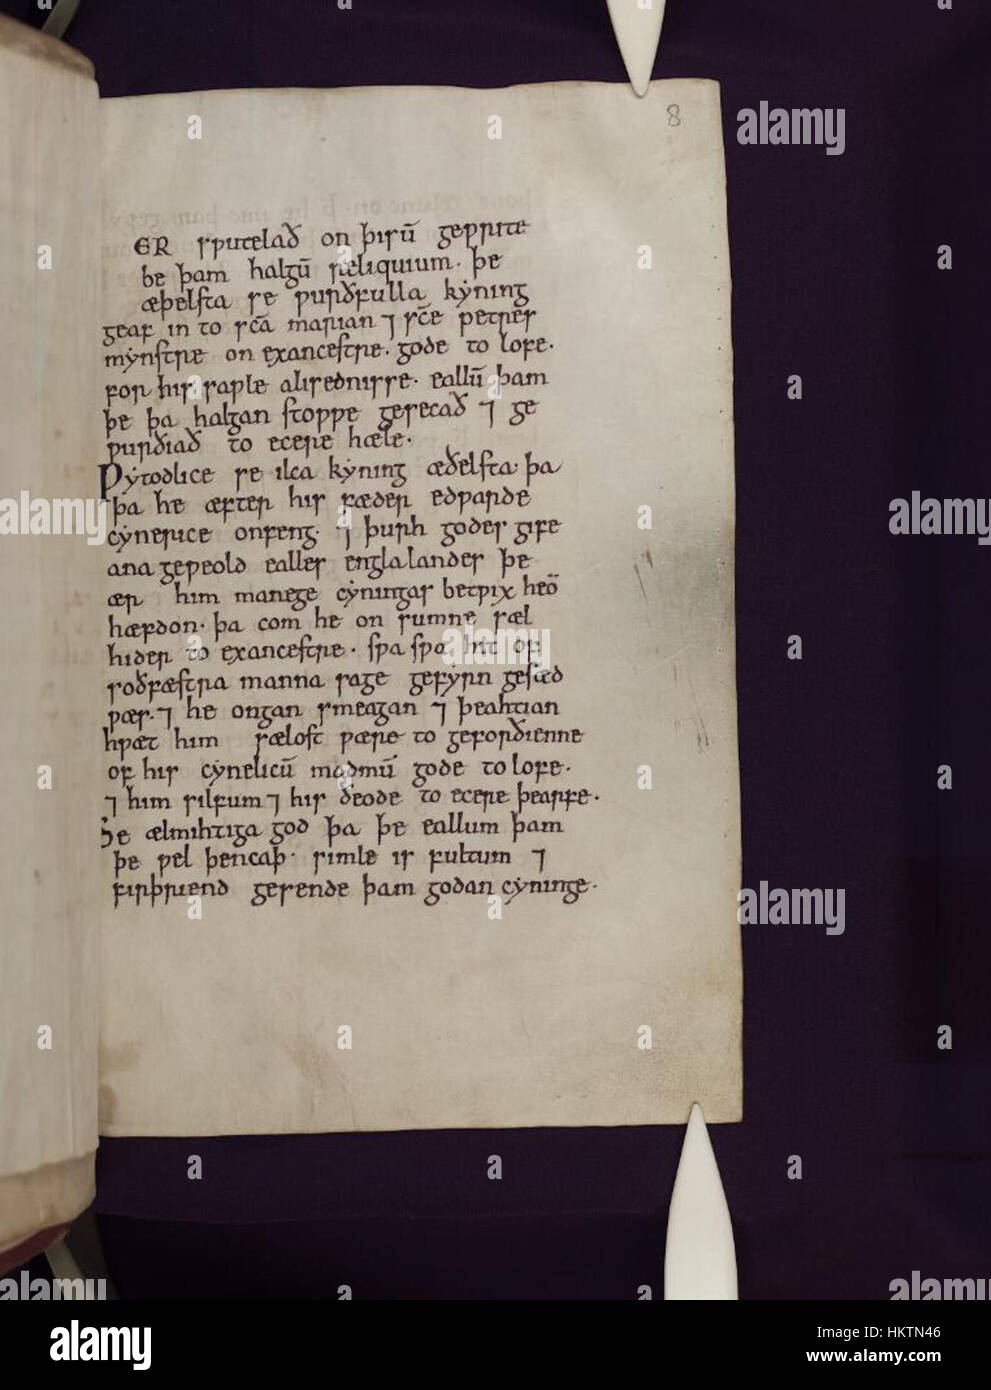 8
ER sƿutelað on þisū geƿrite
be þam halgū reliquium· þe
æþelsta se ƿurðfulla kẏning
geaf in to sc̄a marian ⁊ sc̄e petres
mẏnstre on exancestre· gode to lofe·
for his saƿle alisednisse· eallū þam
þe þa halgan stoƿƿe gesecað ⁊ ge
ƿurðiað to ecere hæle·
Ƿẏtodlice se ilca kẏning æðelsta· þa
þa he æfter his fæder edƿarde
cẏnerice onfeng· ⁊ þurh godes gife
ana geƿeold ealles englalandes þe
ær him manege cẏningas betƿix heō
hæfdon· þa com he on sumne sæl
hider to exancestre· sƿa sƿa hit of
soðfæstra manna sage gefẏrn gesæd
ƿæs· ⁊ he ongan smeagan ⁊ þeahtian
hƿæt him sælost ƿære to geforðienne
of his cẏnelicū madmū gode to lofe·
⁊ him silfum ⁊ his ðeode to ecere þearfe·
Se ælmihtiga god þa þe eallum þam
þe ƿel þencaþ· simle is fultum ⁊
firþriend gesende þam godan cẏninge·
alamy
Image ID: HKTN46
www.alamy.com